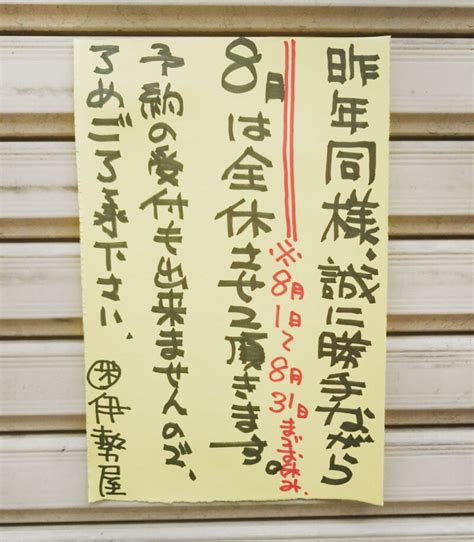 昨年同様、誠に勝手ながら
※8月1日〜8月31日までお休み
8月は全休させて頂きます。
予約の受付も出来ませんので、
ろめごろ承下さい、
㊑伊勢屋